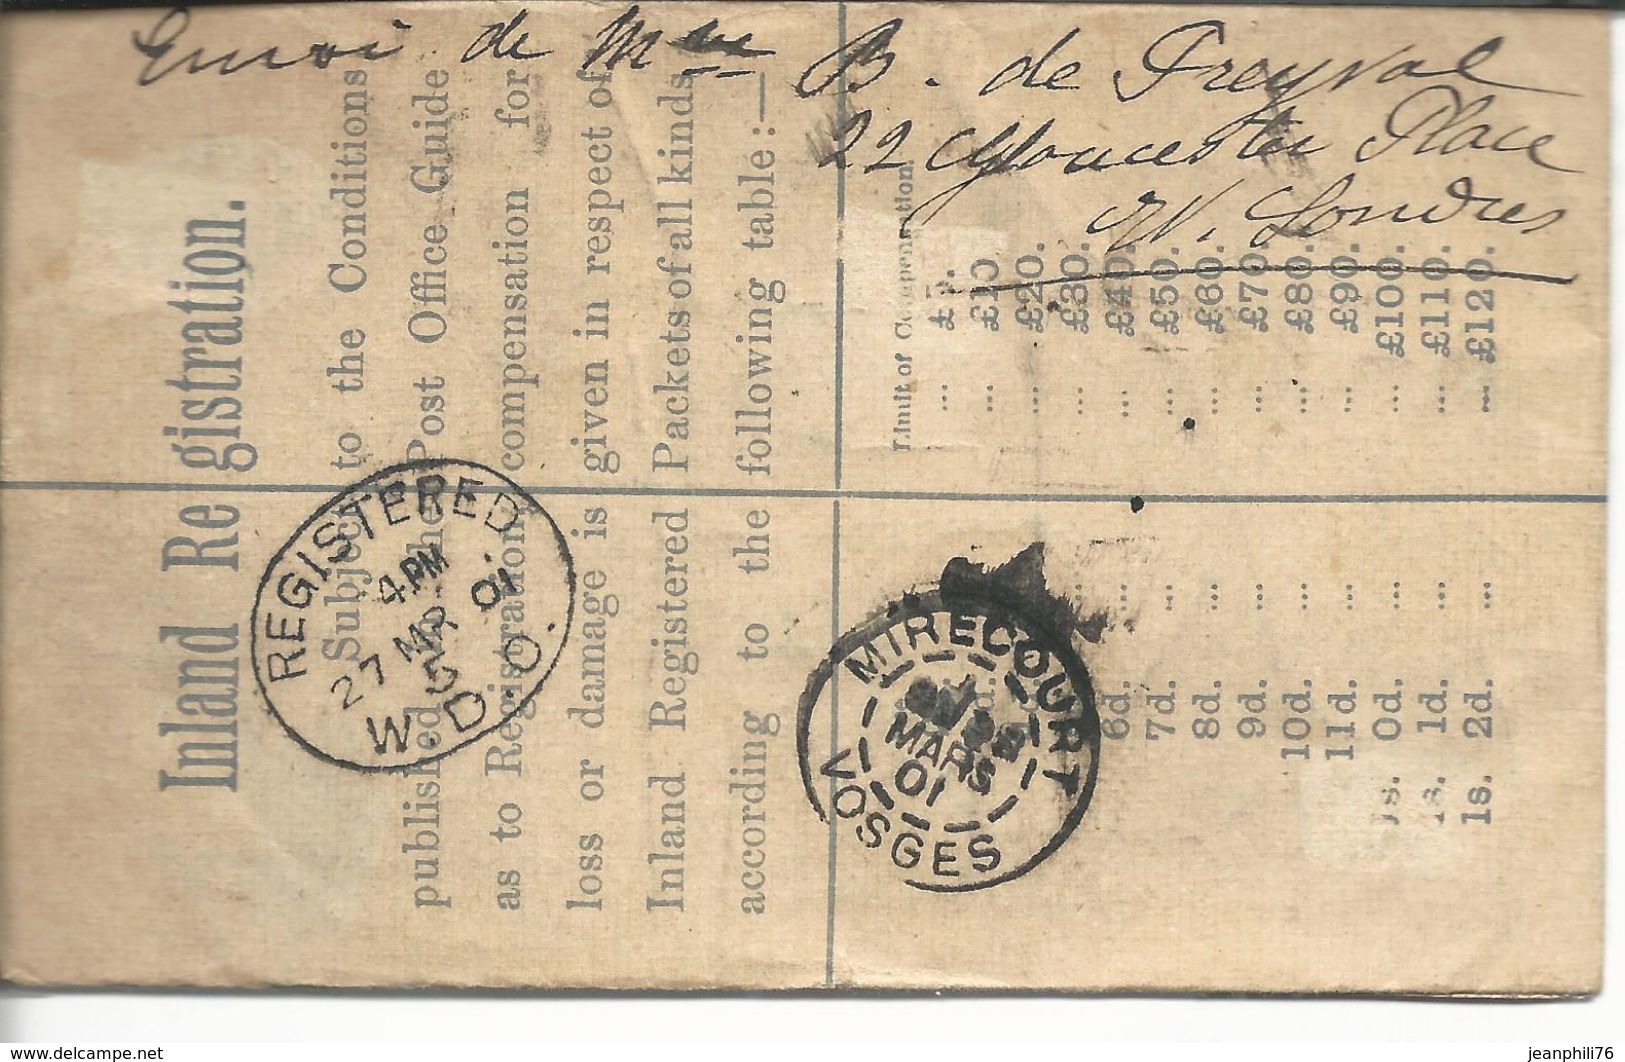 Envoi de Mme B. de Freyval
22 Gloucester Place
W. Londres
Inland Registration.
Subject to the Conditions
published in the Post Office Guide
as to Registration, compensation for
loss or damage is given in respect of
Inland Registered Packets of all kinds
according to the following table:—
Limit of Compensation.
£5.
... £10
... £20.
... £30.
6d. ... £40.
7d. ... £50.
8d. ... £60.
9d. ... £70.
10d. ... £80.
11d. ... £90.
1s. 0d. ... £100.
1s. 1d. ... £110.
1s. 2d. ... £120.
REGISTERED
4.PM
27 MR 01
5
W.D.O.
MIRECOURT
MARS
01
VOSGES
https://www.delcampe.net
jeanphili76